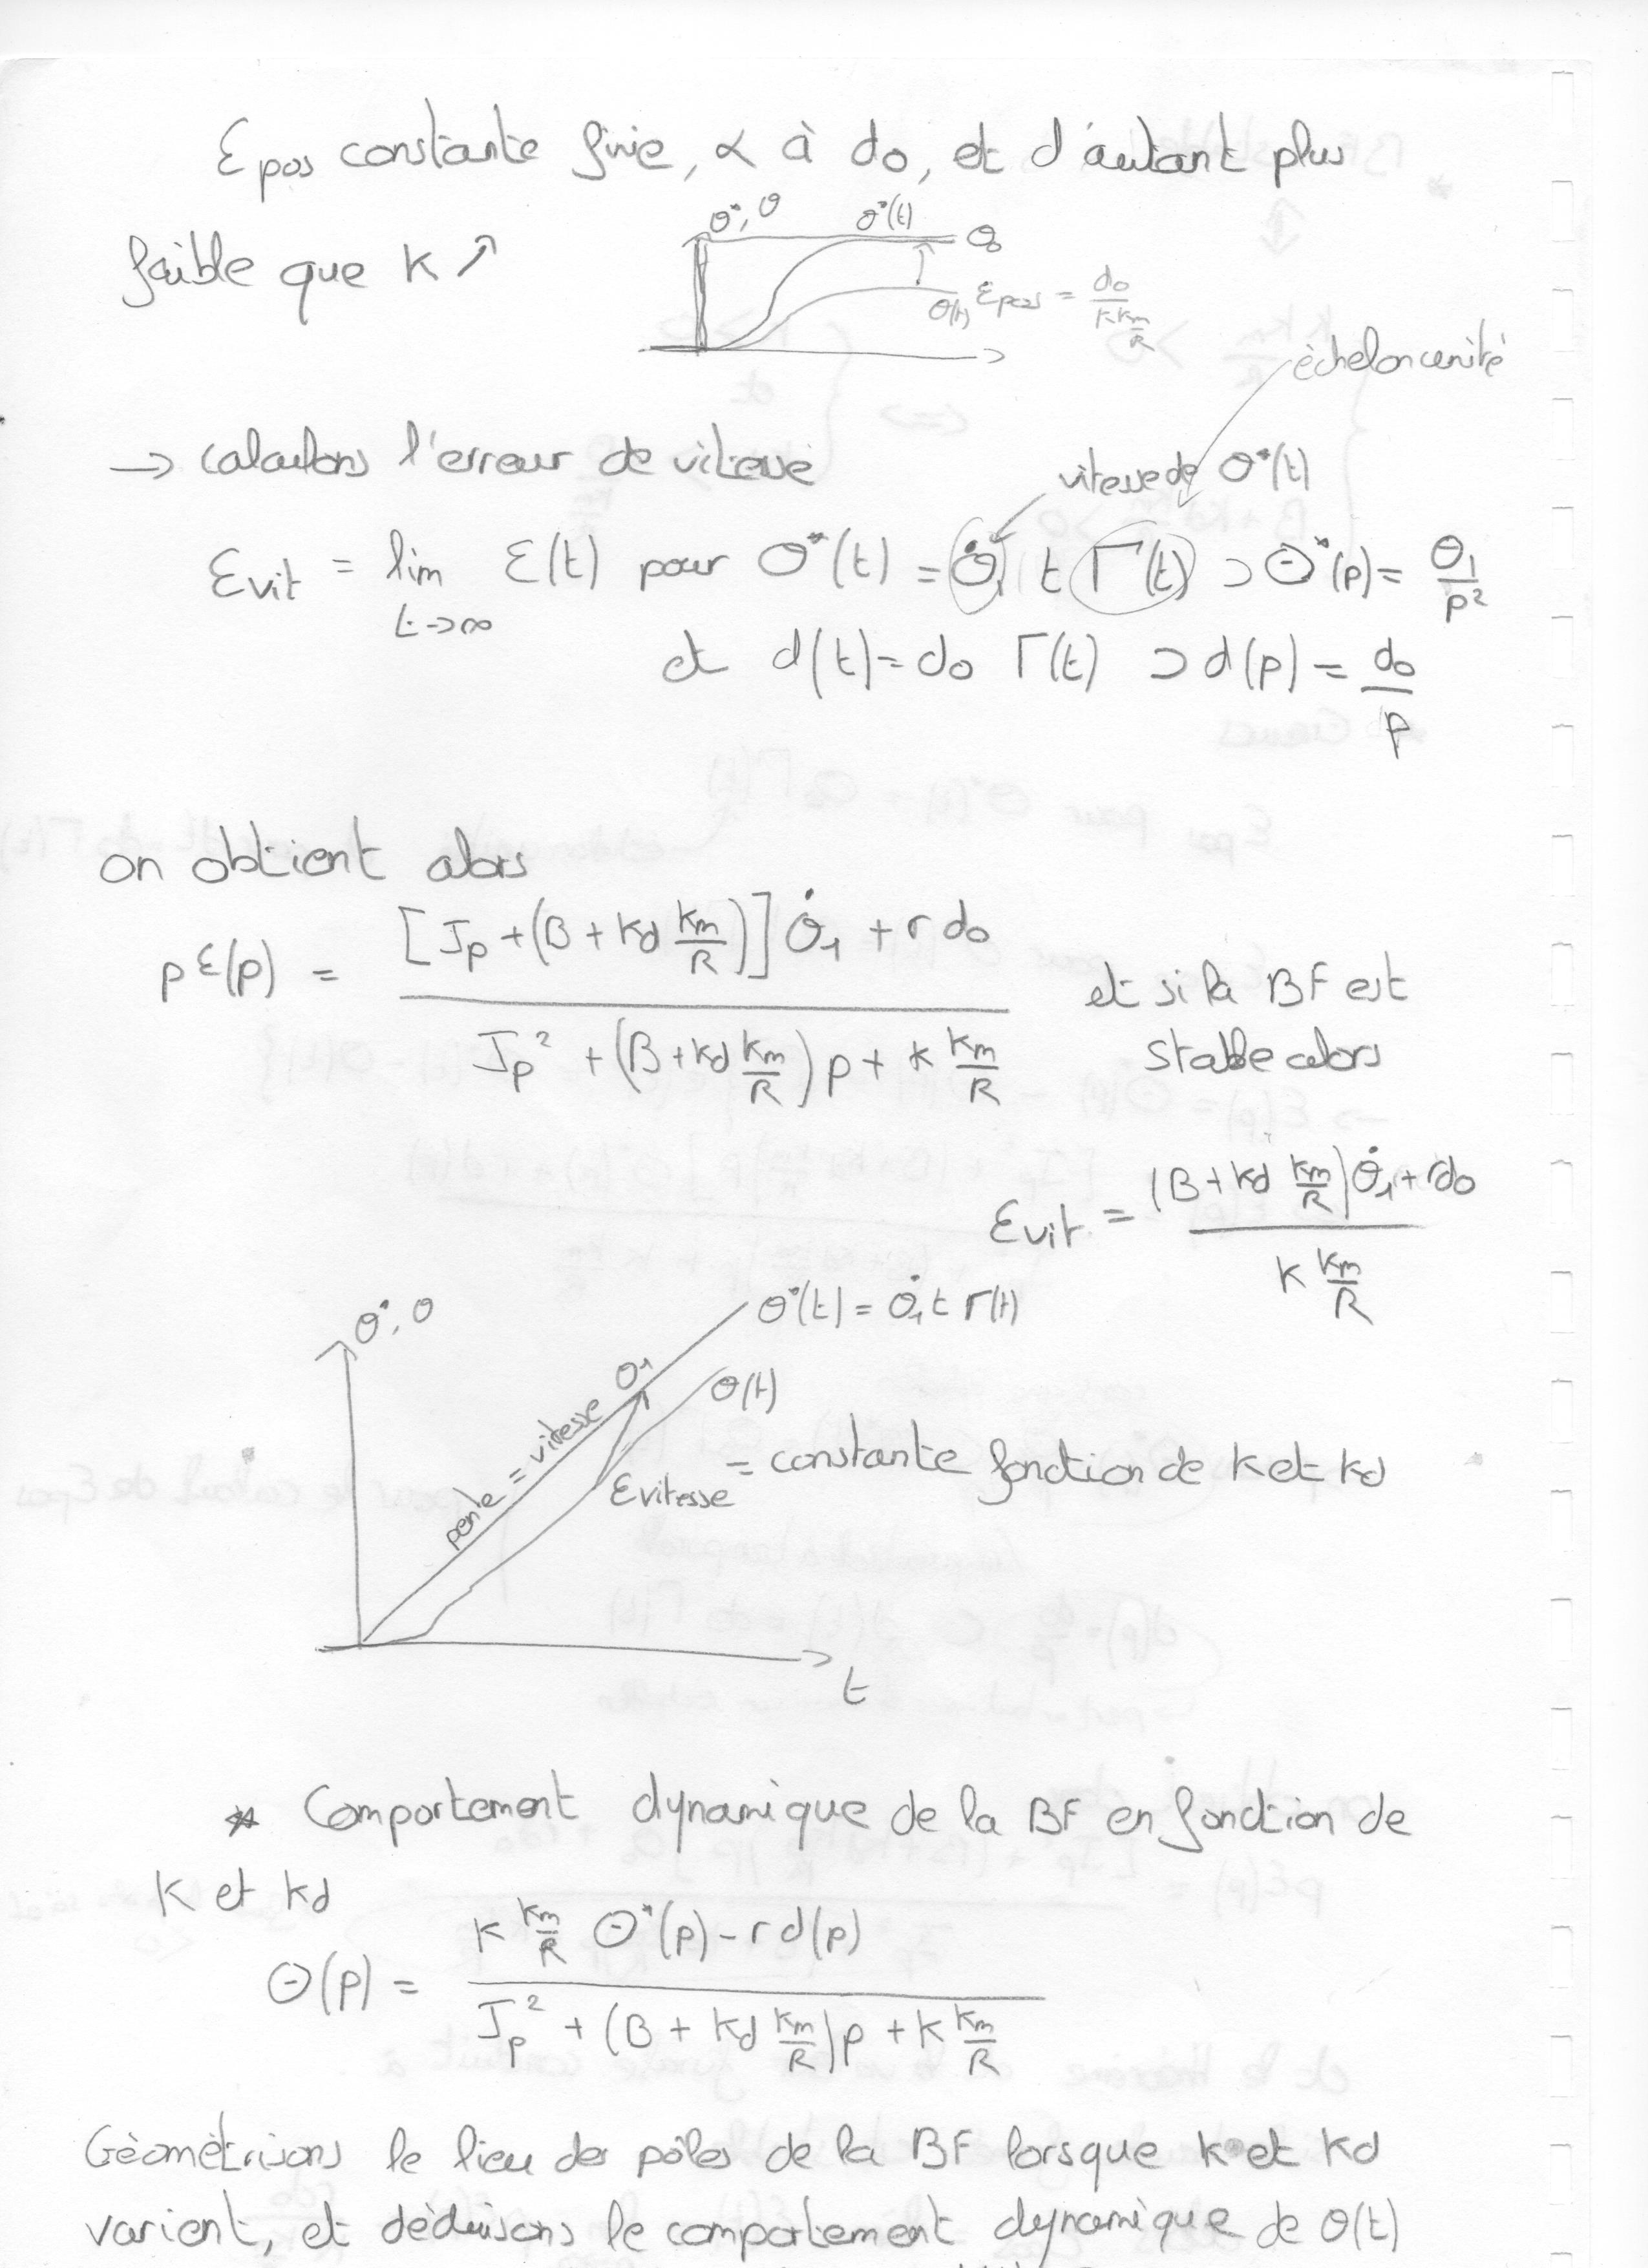 Ɛpos constante finie, α à do, et d'autant plus
faible que K ↗
θ*, θ
θ*(t)
θ0
θ(t)
Ɛpos = do / (K km/R)
échelon unité
→ calculons l'erreur de vitesse
vitesse de θ*(t)
Ɛvit = lim t→∞ Ɛ(t) pour θ*(t) = θ̇1 t Γ(t) ⊃ Θ*(p) = θ̇1/p²
et d(t) = do Γ(t) ⊃ d(p) = do/p
on obtient alors
pƐ(p) = ([Jp + (B + Kd km/R)] θ̇1 + r do) / (Jp² + (B + Kd km/R) p + K km/R) et si la BF est
stable alors
Ɛvit = ((B + Kd km/R) θ̇1 + rdo) / (K km/R)
θ*, θ
θ*(t) = θ̇1 t Γ(t)
pente = vitesse θ1
θ(t)
Ɛvitesse = constante fonction de K et Kd
t
* Comportement dynamique de la BF en fonction de
K et Kd
Θ(p) = (K km/R Θ*(p) - r d(p)) / (Jp² + (B + Kd km/R) p + K km/R)
Géométrisons le lieu des pôles de la BF lorsque K et Kd
varient, et déduisons le comportement dynamique de θ(t)